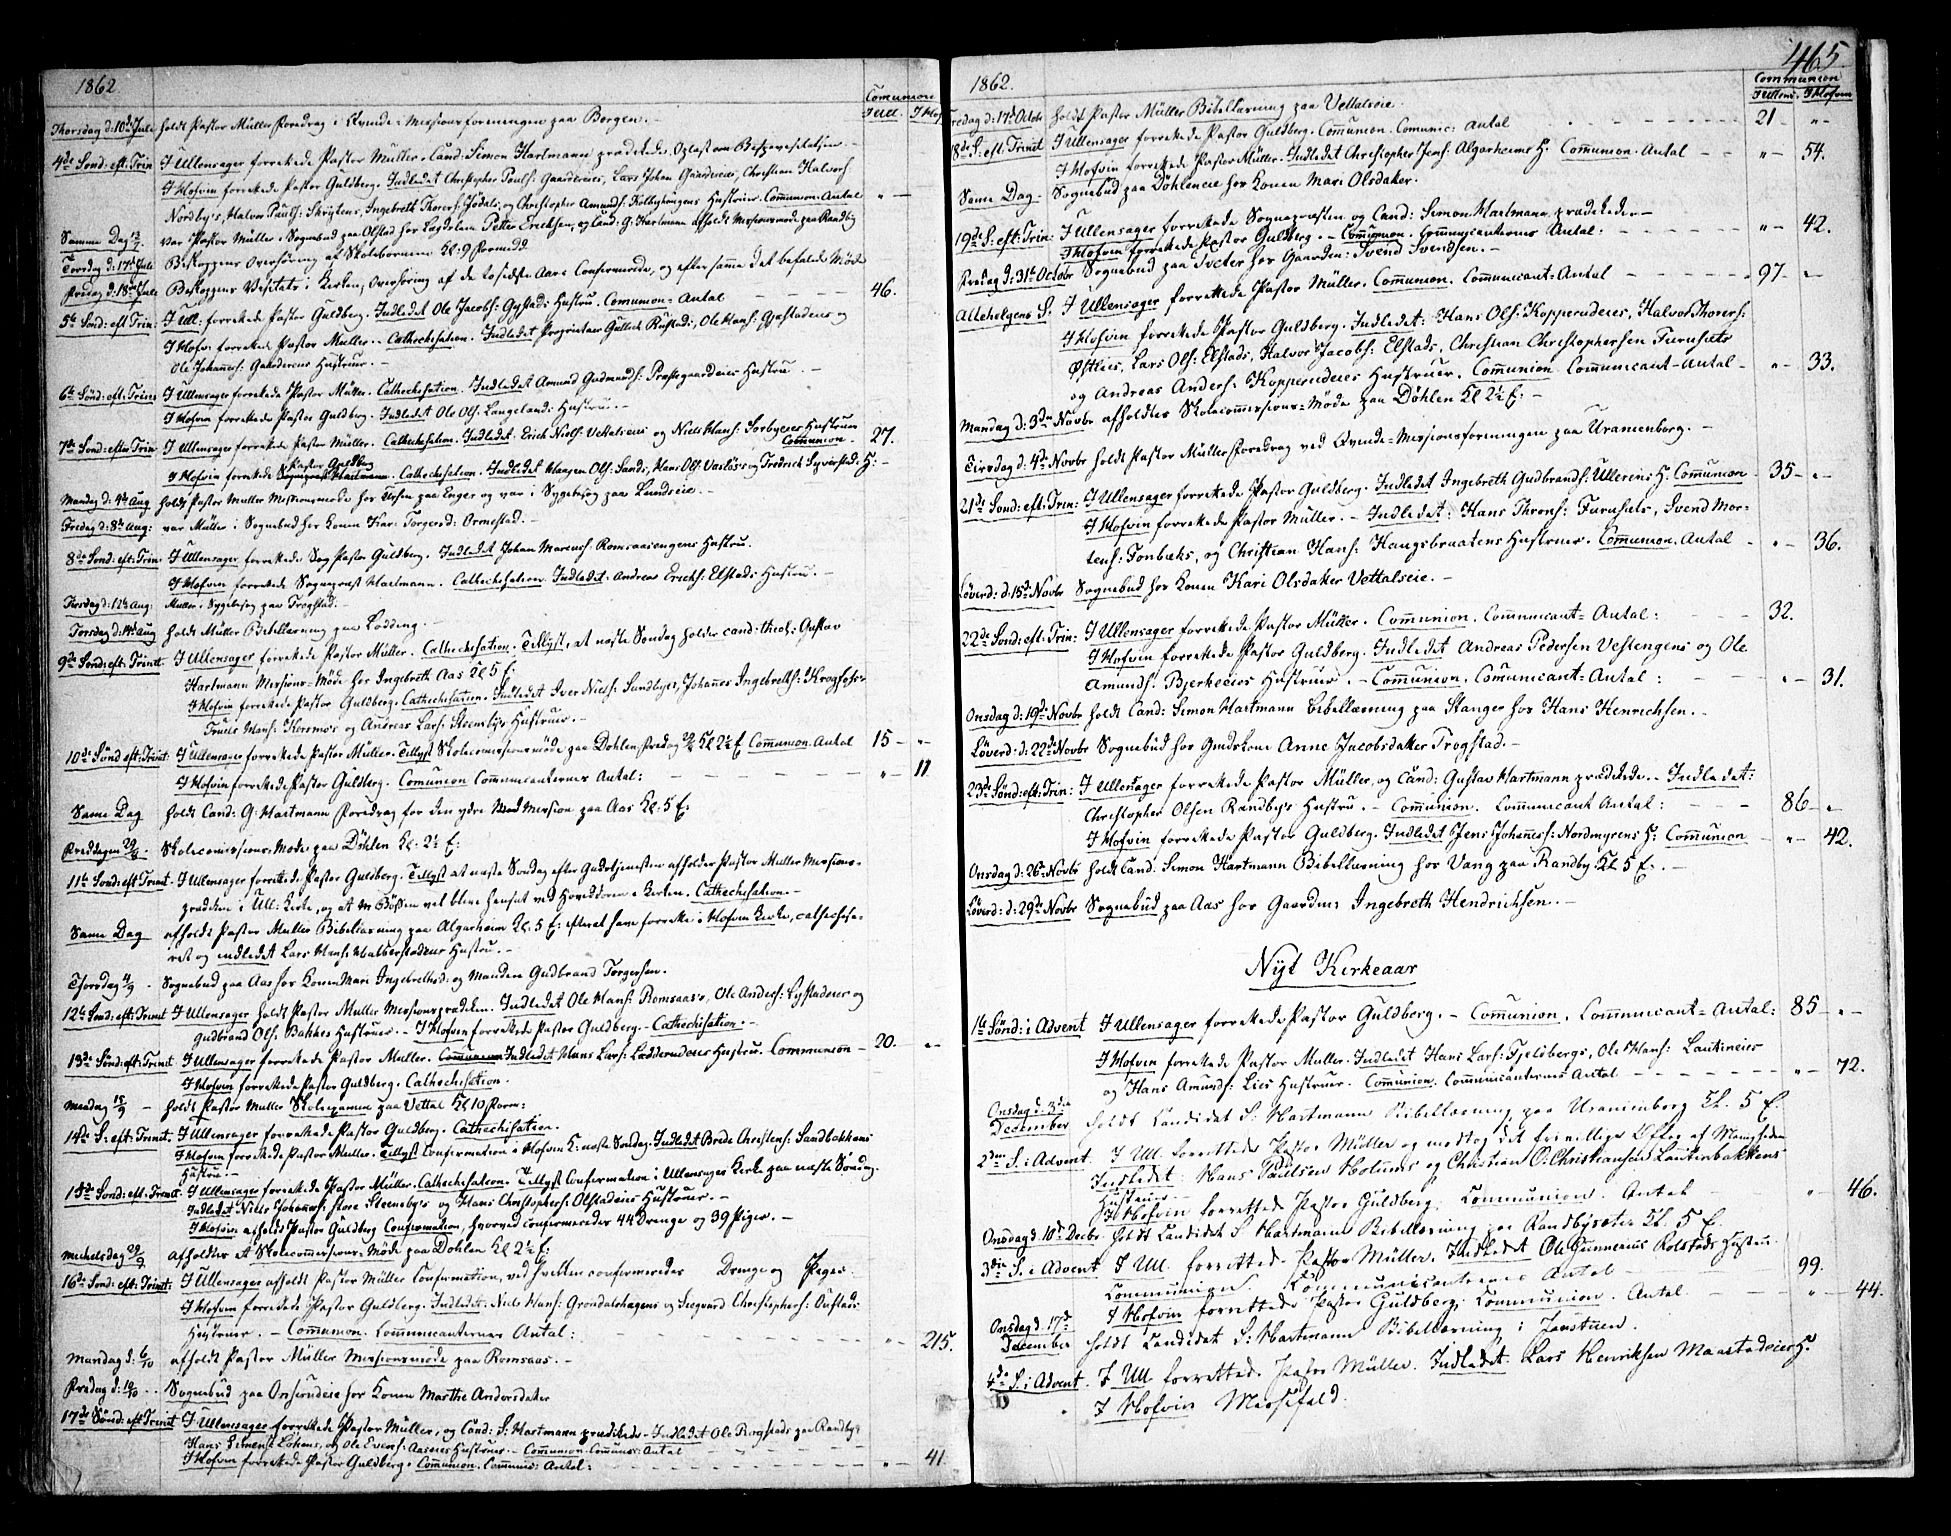 1862
Comunion
I Ull. I Hof
Thorsdag d: 10de Juli holdt Pastor Müller Foredrag i Qvinde-Missionsforeningen paa Borgen. –
4de Sønd: eft: Trin I Ullensager forrettede Pastor Müller. Cand: Simon Hartmann prædikede. Oplæst om Bispevisitatsen. –
I Hofvin forrettede Pastor Guldberg. Indledet Christopher Pouls: Gaardereies, Lars Johan Gaardereies, Christian Halvors:
Nordby's, Halvor Pauls: Skrytens, Ingebreth Thorers: Jødals, og Christopher Amunds: Kilbyhougens Hustruer. Communion: Antal „ –
Samme Dag 13/7 var Pastor Müller i Sognebud paa Olstad hos Lægdslem Petter Ericksen, og Cand: G: Hartmann afholdt Missionsmøde paa Randby
Torsdag d: 17de Juli Biskoppens Overhøring af Skolebørnene Kl: 9 Formidd
Fredag d: 18de Juli Biskoppens Visitats i Kirken, Overhøring af de to sidste Aars Confirmerede, og efter samme det befalede Møde
5te Sønd: eft Trin: I Ull: forrettede Pastor Guldberg. Indledet Ole Jacobs: Gystads Hustru. Comunion = Antal – – 46.
I Hofv: forrettede Pastor Müller. Cathechisation. Indledet Proprietær Gullick Rustads, Ole Hans: Gjestadeies og
Ole Johannes: Gaardereies Hustruer. –
6te Sønd: eft: Trin: I Ullensager forrettede Pastor Müller. Cathechisation. Indledet Amund Gudmunds: Præstegaardeies Hustru. –
I Hofvin forrettede Pastor Guldberg. Indledet Ole Ols: Langelands Hustru. –
7de Sønd: efter Trin I Ullensager forrettede Pastor Müller. Cathechisation. Indledet Erich Niels: Vettalseies og Niels Hans: Sørbyeies Hustruer Communion. 27.
Pastor Guldberg
I Hofvin forrettede Sognepræst Hartmann. Cathechisation. Indledet Haagen Ols: Sands, Hans Ols: Vasløs's og Fredrich Syverstads H: –
Mandag d: 4de Aug holdt Pastor Müller Missionsmøde hos Ursin paa Enger og var i Sygebesøg paa Lundseie. –
Fredag d: 8de Aug: var Müller i Sognebud hos Konen Kar: Torgersd: Ormestad. –
8de Sønd: eft: Trin I Ullensager forrettede Sog Pastor Guldberg. Indledet Johan Marens: Romsaasengens Hustru.
I Hofvin forrettede Sognepræst Hartmann. Cathechisation. Indledet Andreas Erichs: Elstads Hustru. –
Tirsdag d: 12te Aug: Müller i Sygebesøg paa Trogstad. –
Torsdag d: 14de Aug holdt Müller Bibellæsning paa Lodding. –
9de Sønd: eft: Trinit I Ullensager forrettede Pastor Müller. Cathechisation. Tillyst, at næste Søndag holder cand: theol: Gustav
Hartmann Missions-Møde hos Ingebreth Aas Kl 5 E:
I Hofvin forrettede Pastor Guldberg. Cathechisation. Indledet Iver Niels: Sundbyes, Johannes Ingebreths: Krogfoss-
Truels Hans: Kormo's og Andreas Lars: Steenby's Hustruer. –
10de Sønd eft: Trinit: I Ullensager forrettede Pastor Müller. Tillyst Skolecomissionsmøde paa Døhlen Fredag 29/8 Kl 2½ E Communion. Antal 15 – „
I Hofvin forrettede Pastor Guldberg. Comunion Communicanternes Antal: – – – – – – „ – 11
Same Dag holdt Cand: G: Hartmann Foredrag for den ydre Mission paa Aas Kl: 5 E:
Freddagen 29/8. Skolecomissions-Møde paa Døhlen Kl: 2½ E:
11te Sønd: eft Trinit. I Ullensager forrettede Pastor Guldberg. Tillyst at næste Søndag efter Gudstjenesten afholder Pastor Müller Missions-
præken i Ull: Kirke, og at en Bøssen vil blive hensat ved Hoveddøren i Kirken. Cathechisation. –
Same Dag afholdt Pastor Müller Bibellæsning paa Algarheim Kl: 5 E: efterat have forrettet i Hofvin Kirke, cathechise-
ret og indledet Lars Hans: Halberstadeies Hustru. –
Tjorsdag 4/9 Sognebud paa Aas hos Konen Mari Ingebrethsd: og Manden Gudbrand Torgersen.
12te Sønd: eft: Trinit I Ullensager holdt Pastor Müller Missionspræken. Indledet Ole Hans: Romsaas's, Ole Anders: Lystadeies og
Gudbrand Ols: Bakkes Hustruer. – I Hofvin forrettede Pastor Guldberg. – Cathechisation. –
13de Sønd: eft: Trinit I Ullensager forrettede Pastor Müller. Communion Indledet Hans Lars: Ladderudeies Hustru. Communion – 20. „ –
I Hofvin forrettede Pastor Guldberg. Cathechisation.
Mandag 15/9 – holdt Pastor Müller Skoleexamen paa Vettal Kl 10 Form:
14de S: eft: Trinit: I Ullensager forrettede Pastor Guldberg. Cathechisation.
I Hofvin forrettede Pastor Müller. Tillyst Confirmation i Hofvin K: næste Søndag. Indledet Brede Christens: Sandbakkens
Hustru. –
15de Sønd: eft: Trinit. I Ullensager forrettede Pastor Müller. Cathechisation. Tillyst Confirmation i Ullensager Kirke paa næste Søndag.
Indledet Niels Johannes: Store Steensby's og Hans Christophers: Olstadeies Hustruer. –
I Hofvin afholdt Pastor Guldberg Confirmation, hvorved confirmeredes 44 Drenge og 39 Piger. –
Michelsdag 29/9 afholdtes et Skolecommissions-Møde paa Døhlen Kl 2½ E:
16de Sønd: eft: Trinit: I Ullensager afholdt Pastor Müller Confirmation, ved hvilken confirmeredes Drenge og Piger.
I Hofvin forrettede Pastor Guldberg. Indledet: Niels Hans: Grøndalshagens og Siegvard Christophers: Onstads
Hustruer. – Communion. Communicanternes Antal: – – – – – „ – 215.
Mandag d: 6/10 afholdt Pastor Müller Missionsmøde paa Romsaas. –
Fredag d: 10/10 Sognebud paa Onsrudeie hos Konen Marthe Andersdatter
17de Sønd: eft Trinit I Ullensager forrettede Pastor Müller, og Cand: S: Hartmann prædikede. Indledet Ole Rogstads paa Randby,
Hans Simens: Løkens, og Ole Evens: Aaseies Hustruer. – Communion. Comunic: Antal
I Hofvin forrettede Pastor Guldberg. Comunion. Communic: Antal: – – – – – „ – 41
465
1862.
Communion
I Ullens. I Hofvin
Fredag d: 17de Octobr holdt Pastor Müller Bibellæsning paa Vettalseie.
18de S: eft: Trinit I Ullensager forrettede Pastor Guldberg. Communion. Comunic: Antal – – – – – 21 – „ –
I Hofvin forrettede Pastor Müller. Indledet Christopher Jens: Algarheims H: Communion. Antal – – „ – 54.
Same Dag – Sognebud paa Døhleneie hos Konen Mari Olsdater.
19de S: eft: Trin: I Ullensager forrettede Sognepræsten og Cand: Simon Hartmann prædikede. –
I Hofvin forrettede Pastor Guldberg. – Communion. Communicanternes Antal: – – – – „ – 42.
Fredag d: 31te Octobr Sognebud paa Sveter hos Gaardm: Svend Svendsen. –
Allehelgens S. I Ullensager forrettede Pastor Müller. Communion. Communicant = Antal – – – – 97 – „ –
I Hofvin forrettede Pastor Guldberg. Indledet: Hans Ols: Kopperudeies, Halvor Thorers:
Østlies, Lars Ols: Elstads, Halvor Jacobs: Elstads, Christian Christophersen Furusets
og Andreas Anders: Kopperudeies Hustruer. Communion Communicant-Antal – „ – 33.
Mandag d: 3die Novbr afholdtes Skolecommissions-Møde paa Døhlen Kl 2½ E: –
Tirsdag d: 4de Novbr holdt Pastor Müller Foredrag ved Qvinde-Missionsforeningen paa Uranienborg. –
21de Sønd: eft: Trin: I Ullensager forrettede Pastor Guldberg. Indledet Ingebreth Gudbrands: Ullerens H. Communion 35 – „ –
I Hofvin forrettede Pastor Müller. – Indledet: Hans Throns: Furusets, Svend Mor-
tens: Fonbæks, og Christian Hans: Haugsbraatens Hustruer. Communion. Antal – „ – 36.
Løverd: d: 15de Novbr Sognebud hos Konen Kari Olsdater Vettalseie. –
22de Sønd: eft: Trin: I Ullensager forrettede Pastor Müller. Communion. Communicant = Antal: – 32.
I Hofvin forrettede Pastor Guldberg. Indledet Andreas Pedersen Vestengens og Ole
Amunds: Bjerkeeies Hustruer. – Communion. Comunicant = Antal: – – „ – 31.
Onsdag d: 19de Novbr holdt Cand: Simon Hartmann Bibellæsning paa Hanger hos Hans Henrichsen. –
Løverd: d: 22de Novbr Sognebud hos Grdskone Anne Jacobsdatter Trogstad. –
23de Sønd: eft: Trin: I Ullensager forrettede Pastor Müller, og Cand: Gustav Hartmann prædikede. – Indledet:
Christopher Olsen Randby's Hustru. – Communion. Communicant Antal: – 86 – „ –
I Hofvin forrettede Pastor Guldberg. Indledet Jens Johannes: Nordmyrens H: Communion – „ – 42.
Onsdag d: 26de Novbr holdt Cand: Simon Hartmann Bibellæsning hos Vang paa Randby Kl 5 E. –
Løverd: d: 29de Novbr Sognebud paa Aas hos Gaardm: Ingebreth Hendrichsen. –
Nyt Kirkeaar
1ste Sønd: i Advent I Ullensager forrettede Pastor Guldberg. – Comunion. Communicant = Antal: 85 – „ –
I Hofvin forrettede Pastor Müller. Indledet Hans Lars: Fjeldbergs, Ole Hans: Lautineies
og Hans Amunds: Lies Hustruer. Comunion. Communicanternes Antal – – – – „ – 72.
Onsdag d. 3die December holdt Candidat S: Hartmann Bibellæsning paa Uranienborg Kl. 5 E.
2den S. i Advent. I Ull. forrettede Pastor Müller og modtog det frivillige Offer af Menigheden
Indledet: Hans Paulsen Holums og Christian O: Christiansens Lauterbakkens
Hustruer. –
I Hofvin forrettede Pastor Guldberg. Communion. Antal – „ – 46.
Onsdag d. 10de Decbr. holdt Candidat S. Hartmann Bibellæsning paa Randbysæter Kl. 5 E.
3die S. i Advent I Ull. forrettede Pastor Müller. Indledet Ole Gunnerius Rolstads Hustru.
Communion. Kommunicanternes Antal – 99.
I Hofvin forrettede Pastor Guldberg. Communion. Antal – – – „ – 44.
Onsdag d. 17de December holdt Candidat S: Hartmann Bibellæsning i Jonstuen.
4de S. i Advent. I Ull forrettede Pastor Müller. Indledet. Lars Henriksen Maastadeies H.
„ I Hofvin Messefald.